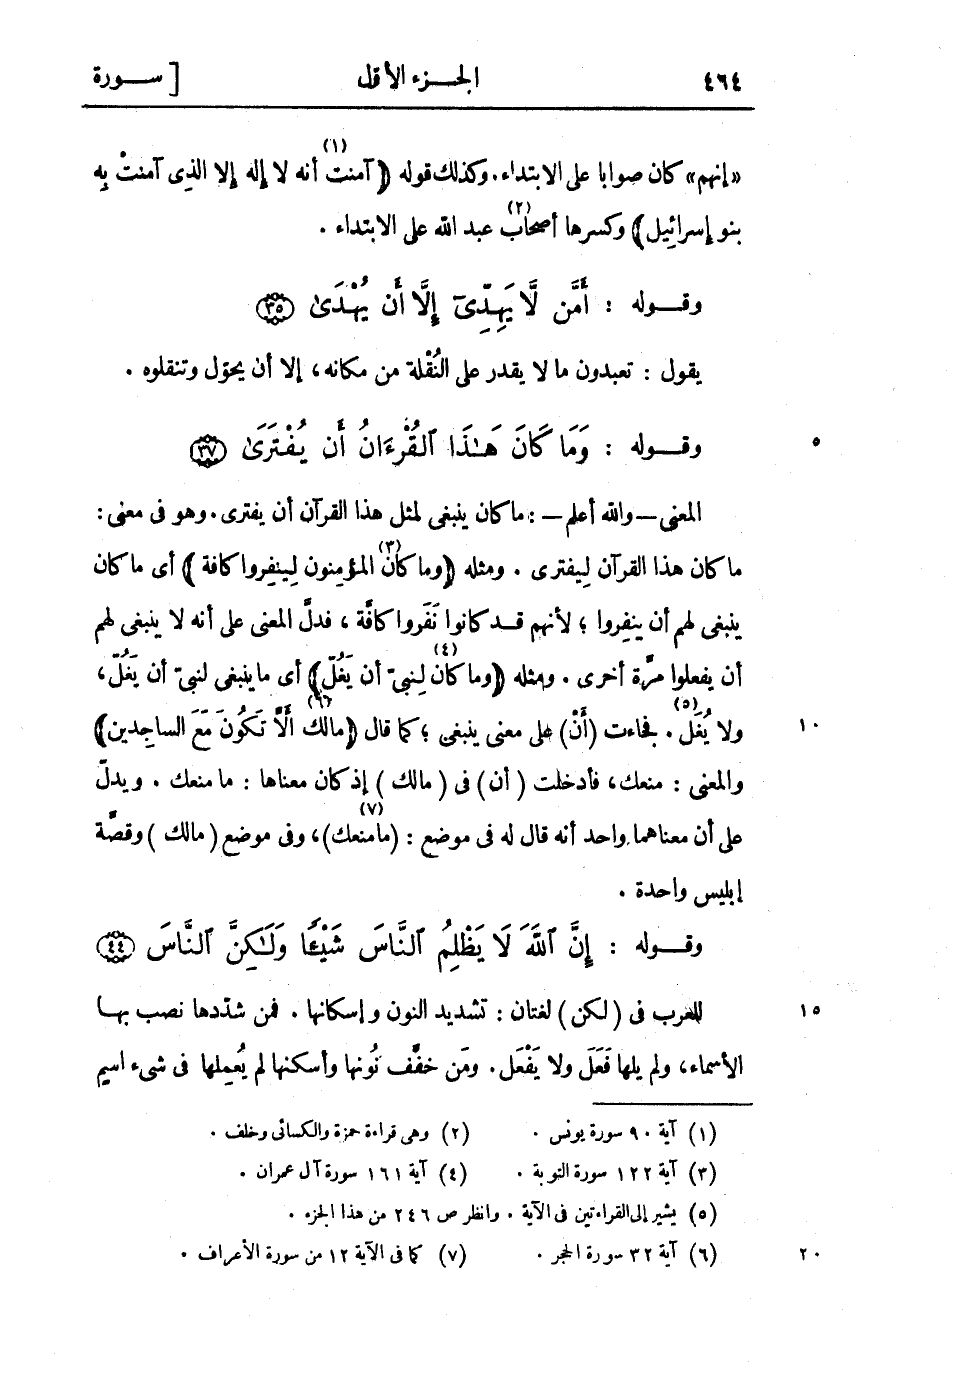 ٤٦٤ الجـزء الأول [ سـورة
«إنهم» كان صوابا على الابتداء. وكذلك قوله ﴿آمنت (١) أنه لا إله إلا الذى آمنتْ بِه
بنو إسرائيل﴾ وكسرها أصحاب (٢) عبد الله على الابتداء .
وقـوله : أَمَّن لَّا يَهِدِّىٓ إِلَّآ أَن يُهْدَىٰ ٣٥
يقول : تعبدون ما لا يقدر على النُقْلة من مكانه، إلا أن يحوّل وتنقلوه .
٥ وقـوله : وَمَا كَانَ هَـٰذَا ٱلْقُرْءَانُ أَن يُفْتَرَىٰ ٣٧
المعنى ــ والله أعلم ــ : ما كان ينبغى لمثل هذا القرآن أن يفترى. وهو فى معنى:
ما كان هذا القرآن لِيفترى . ومثله ﴿وما كان (٣) المؤمِنون لِينفِروا كافة﴾ أى ما كان
ينبغى لهم أن ينفِروا ؛ لأنهم قـد كانوا نَفَروا كافَّة ، فدلَّ المعنى على أنه لا ينبغى لهم
أن يفعلوا مرَّة أخرى . ومثله ﴿وما كان (٤) لِنبىّ أن يَغُلّ﴾ أى ما ينبغى لنبىّ أن يَغُلّ،
١٠ ولا يُغَلّ (٥) . فجاءت (أَنْ) على معنى ينبغى ؛ كما قال ﴿مالك (٦) ألَّا تَكُونَ مَعَ الساجِدين﴾
والمعنى : منعك، فأدخلت (أن) فى (مالك) إذ كان معناها : ما منعك . ويدلّ
على أن معناهما واحد أنه قال له فى موضع : (ما منعك (٧))، وفى موضع (مالك) وقصَّة
إبليس واحدة .
وقـوله : إِنَّ ٱللَّهَ لَا يَظْلِمُ ٱلنَّاسَ شَيْـًٔا وَلَـٰكِنَّ ٱلنَّاسَ ٤٤
١٥ للعرب فى (لكن) لغتان : تشديد النون وإسكانها . فمن شدّدها نصب بهـا
الأسماء، ولم يلها فَعَلَ ولا يَفْعَل . ومَن خفَّف نُونها وأسكنها لم يُعمِلها فى شىء اسيم
(١) آية ٩٠ سورة يونس . (٢) وهى قراءة حمزة والكسائى وخلف .
(٣) آية ١٢٢ سورة التوبة . (٤) آية ١٦١ سورة آل عمران .
(٥) يشير إلى القراءتين فى الآية . وانظر ص ٢٤٦ من هذا الجزء .
٢٠ (٦) آية ٣٢ سورة الحجر . (٧) كما فى الآية ١٢ من سورة الأعراف .